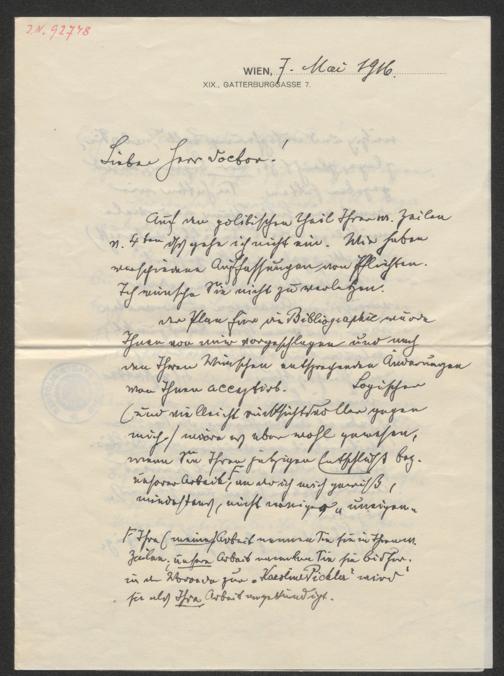 J.N. 92748
WIEN, 7. Mai 1916.
XIX., GATTERBURGGASSE 7.
Lieber Herr Doctor!
Auf den politischen Theil Ihrer w. Zeilen
v. 4ten dss gehe ich nicht ein. Wir haben
verschiedene Auffassungen von Pflichten.
Ich wünsche Sie nicht zu verletzen.
Der Plan für die Bibliographie wurde
Ihnen von mir vorgeschlagen und nach
den Ihren Wünschen entsprechenden Änderungen
von Ihnen acceptirt. Logischer
(und vielleicht rücksichtsvoller gegen
mich) wäre es aber wohl gewesen,
wenn Sie Ihren jetzigen Entschluß bez.
unserer Arbeit, an der ich mich gewiß,
mindestens, nicht weniger „uneigen-
Ihre (meine) Arbeit nennen Sie sie in Ihren w.
Zeilen, unsere Arbeit nannten Sie sie bisher.
in der Vorrede zur „Karoline Pichler“ wird
sie als Ihre Arbeit angekündigt.